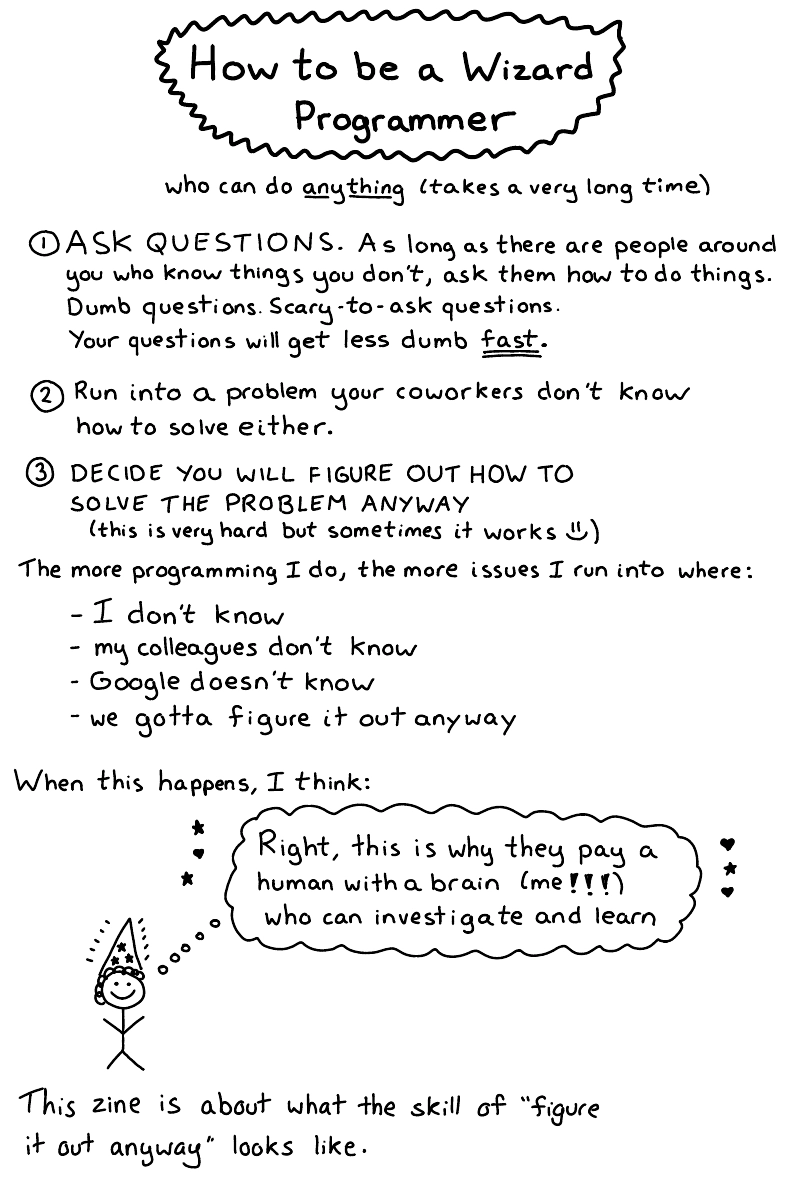 How to be a Wizard
Programmer
who can do anything (takes a very long time)
① ASK QUESTIONS. As long as there are people around
you who know things you don't, ask them how to do things.
Dumb questions. Scary-to-ask questions.
Your questions will get less dumb fast.
② Run into a problem your coworkers don't know
how to solve either.
③ DECIDE YOU WILL FIGURE OUT HOW TO
SOLVE THE PROBLEM ANYWAY
(this is very hard but sometimes it works :))
The more programming I do, the more issues I run into where:
- I don't know
- my colleagues don't know
- Google doesn't know
- we gotta figure it out anyway
When this happens, I think:
Right, this is why they pay a
human with a brain (me!!!)
who can investigate and learn
This zine is about what the skill of "figure
it out anyway" looks like.